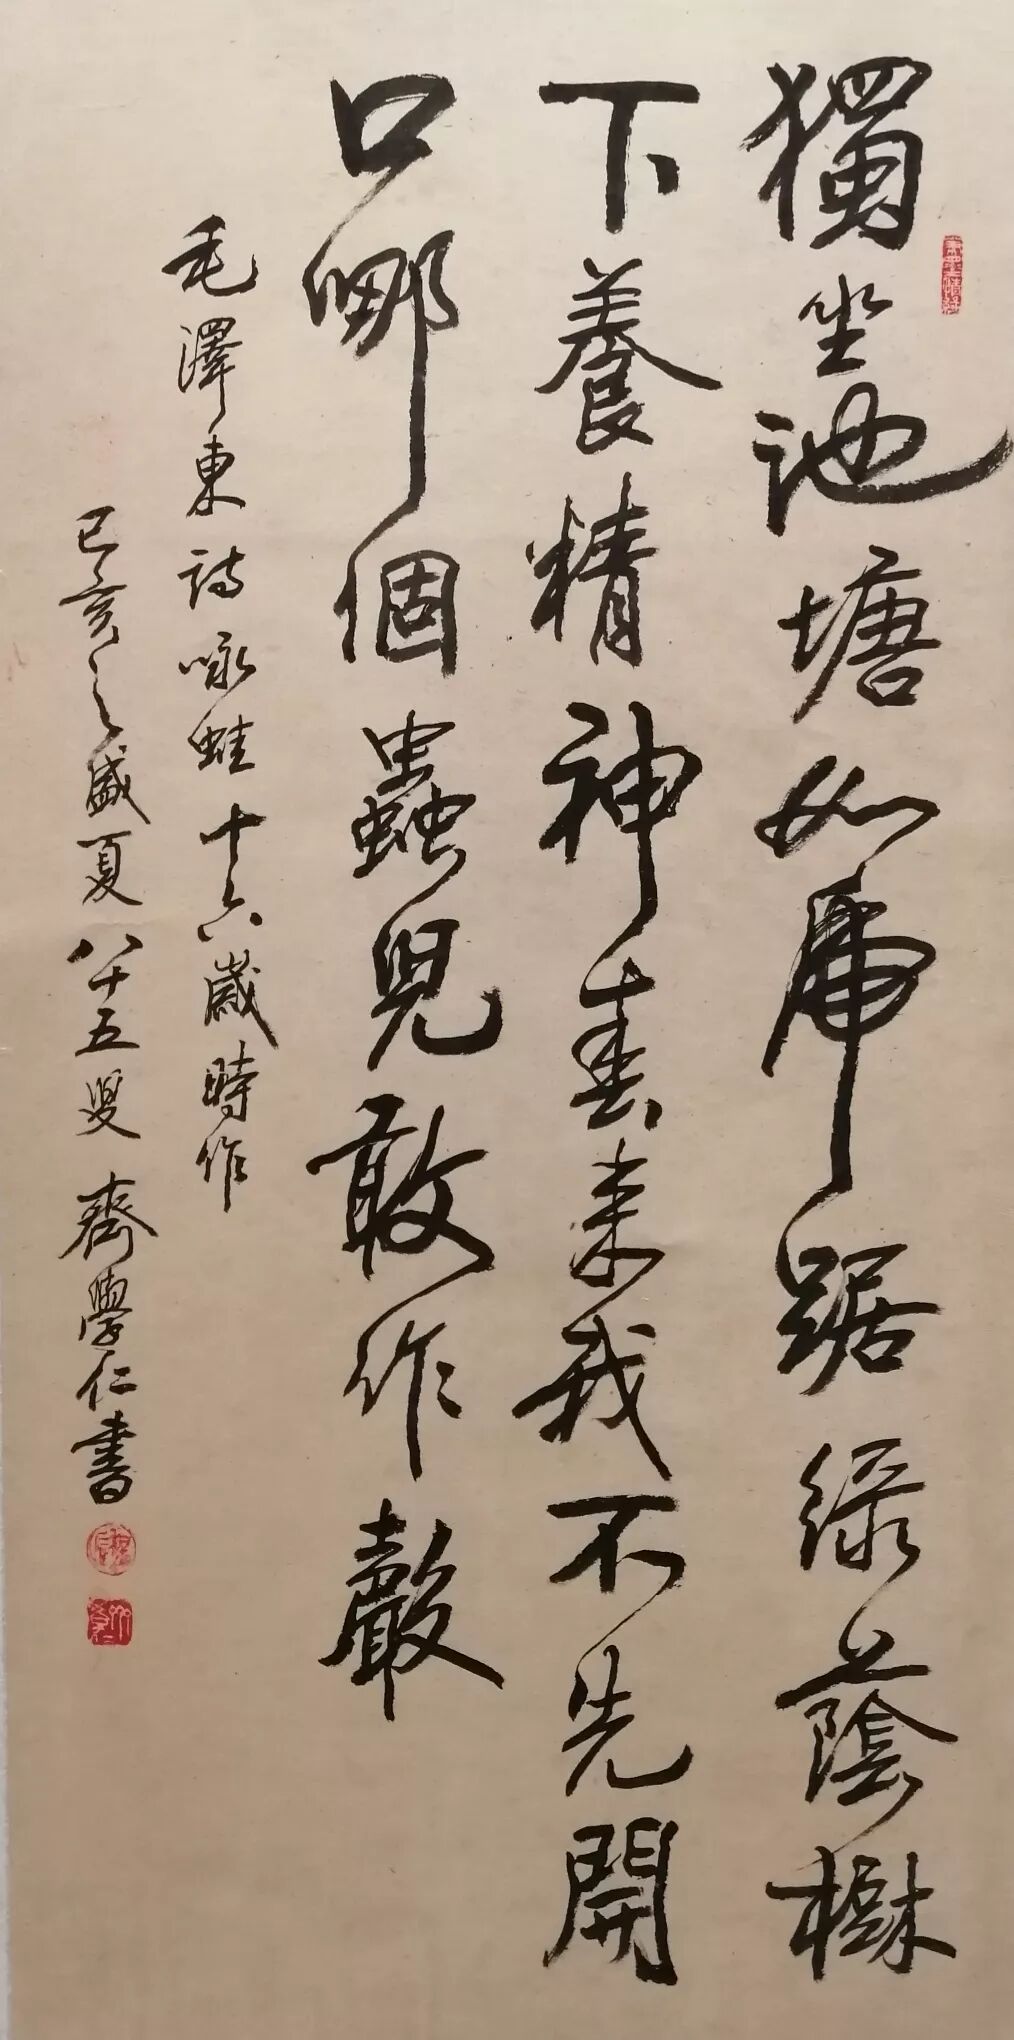 獨坐池塘如虎踞綠蔭樹
下養精神春來我不先開
口哪個蟲兒敢作聲
毛澤東詩咏蛙十六歲時作
己亥之盛夏八十五叟齊學仁書